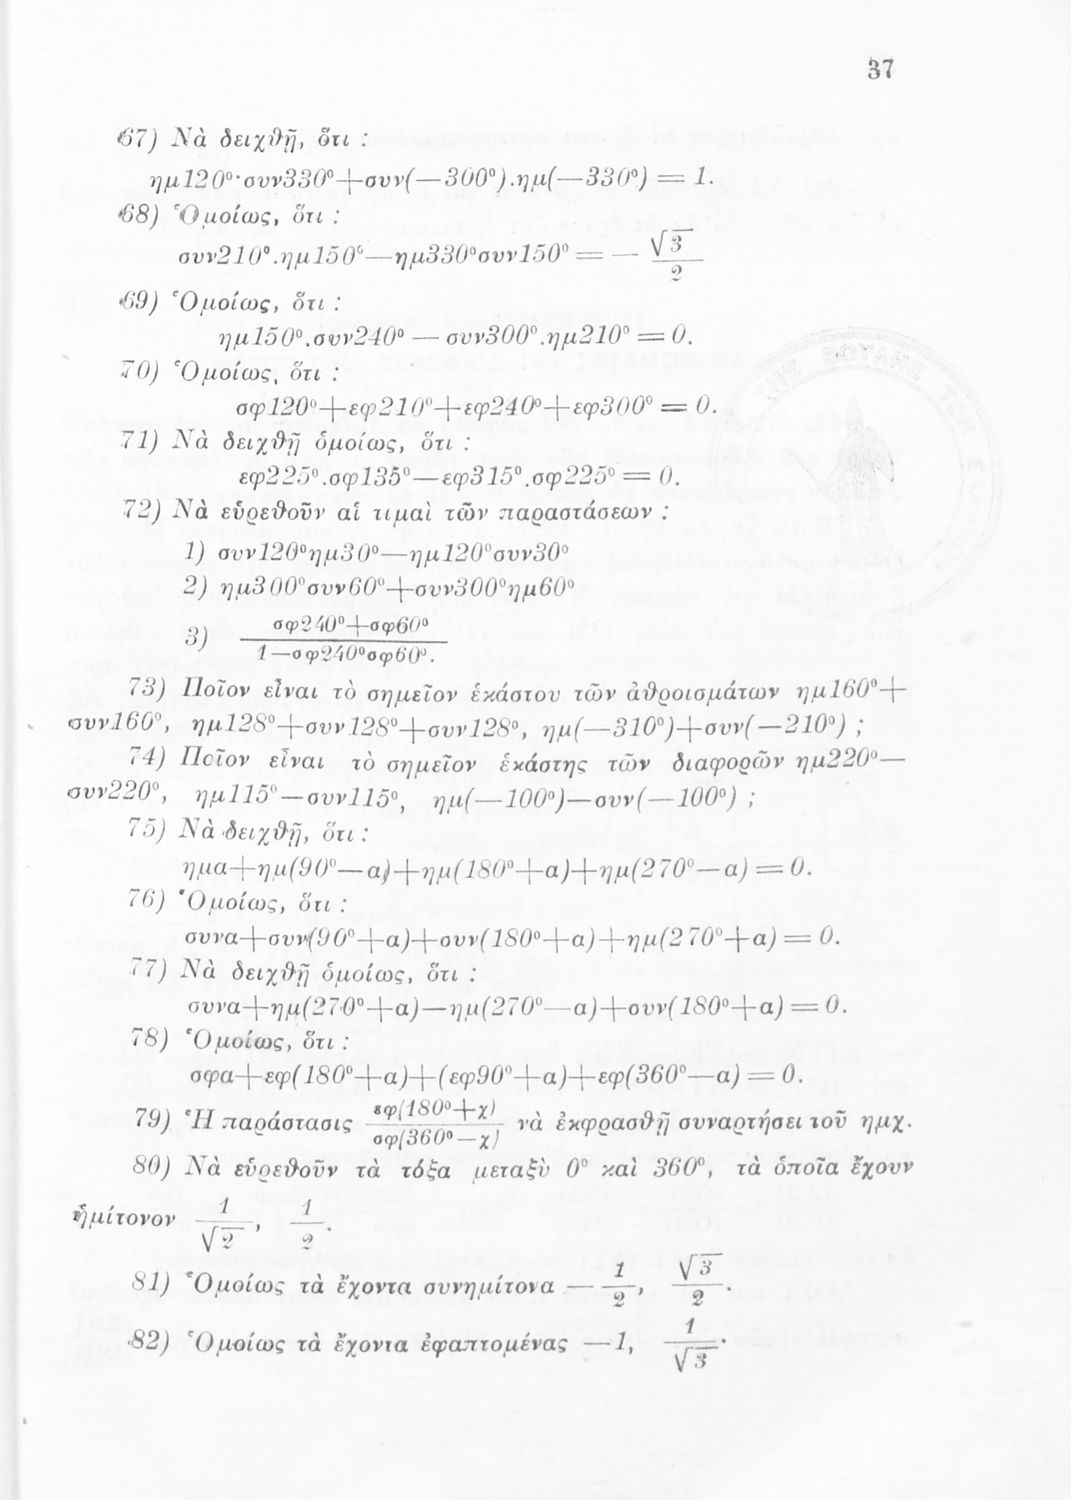 37
67) Νὰ δειχθῇ, ὅτι :
ημ120°·συν330°+συν(—300°).ημ(—330°) = 1.
68) Ὁμοίως, ὅτι :
συν210°.ημ150°—ημ330°συν150° = — √3/2
69) Ὁμοίως, ὅτι :
ημ150°.συν240° — συν300°.ημ210° = 0.
70) Ὁμοίως, ὅτι :
σφ120°+εφ210°+εφ240°+εφ300° = 0.
71) Νὰ δειχθῇ ὁμοίως, ὅτι :
εφ225°.σφ135°—εφ315°.σφ225° = 0.
72) Νὰ εὑρεθοῦν αἱ τιμαὶ τῶν παραστάσεων :
1) συν120°ημ30°—ημ120°συν30°
2) ημ300°συν60°+συν300°ημ60°
3) σφ240°+σφ60°
1—σφ240°σφ60°.
73) Ποῖον εἶναι τὸ σημεῖον ἑκάστου τῶν ἀθροισμάτων ημ160°+
συν160°, ημ128°+συν128°+συν128°, ημ(—310°)+συν(—210°) ;
74) Ποῖον εἶναι τὸ σημεῖον ἑκάστης τῶν διαφορῶν ημ220°—
συν220°, ημ115°—συν115°, ημ(—100°)—συν(—100°) ;
75) Νὰ δειχθῇ, ὅτι :
ημα+ημ(90°—α)+ημ(180°+α)+ημ(270°—α) = 0.
76) Ὁμοίως, ὅτι :
συνα+συν(90°+α)+συν(180°+α)+ημ(270°+α) = 0.
77) Νὰ δειχθῇ ὁμοίως, ὅτι :
συνα+ημ(270°+α)—ημ(270°—α)+συν(180°+α) = 0.
78) Ὁμοίως, ὅτι :
σφα+εφ(180°+α)+(εφ90°+α)+εφ(360°—α) = 0.
79) Ἡ παράστασις εφ(180°+χ)/σφ(360°—χ) νὰ ἐκφρασθῇ συναρτήσει τοῦ ημχ.
80) Νὰ εὑρεθοῦν τὰ τόξα μεταξὺ 0° καὶ 360°, τὰ ὁποῖα ἔχουν
ἡμίτονον 1/√2, 1/2.
81) Ὁμοίως τὰ ἔχοντα συνημίτονα — 1/2, √3/2.
82) Ὁμοίως τὰ ἔχοντα ἐφαπτομένας —1, 1/√3.